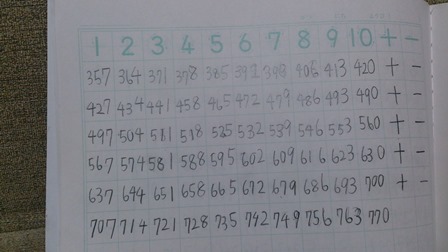 1 2 3 4 5 6 7 8 9 10 + -
357 364 371 378 385 392 399 406 413 420 + -
427 434 441 458 465 472 479 486 493 490 + -
497 504 511 518 525 532 539 546 553 560 + -
567 574 581 588 595 602 609 616 623 630 + -
637 644 651 658 665 672 679 686 693 700 + -
707 714 721 728 735 742 749 756 763 770